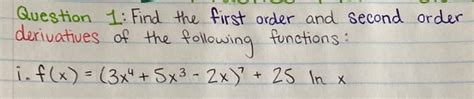 Question 1: Find the first order and second order
derivatives of the following functions:
i. f(x) = (3x⁴ + 5x³ - 2x)⁷ + 25 ln x